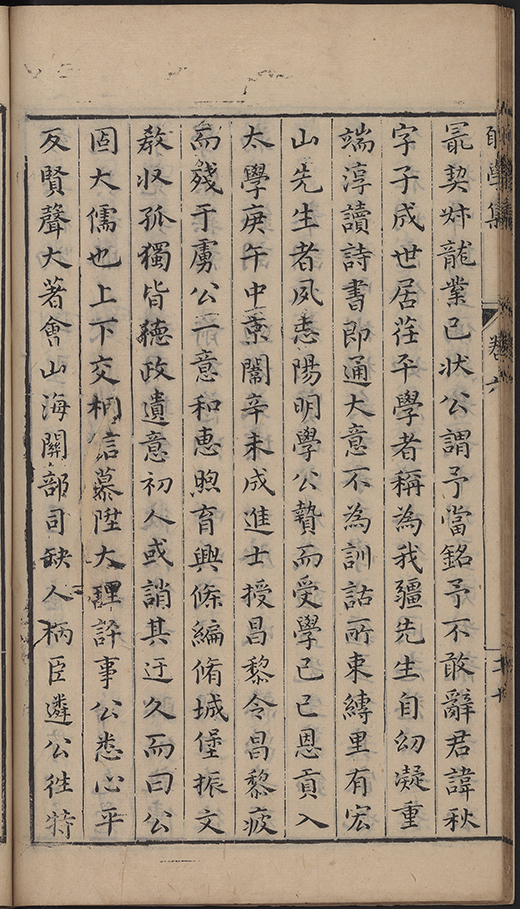 學集
卷六
最契叔龍業已狀公謂予當銘予不敢辭君諱秋
字子成世居茌平學者稱為我疆先生自幼凝重
端淳讀詩書即通大意不為訓詁所束縛里有宏
山先生者夙志陽明學公贄而受學己巳恩貢入
太學庚午中京闈辛未成進士授昌黎令昌黎疲
而殘于虜公一意和惠煦育興條編脩城堡振文
教収孤獨皆聽政遺意初人或誚其迂久而曰公
固大儒也上下交相信慕陞大理評事公悉心平
反賢聲大著會山海關部司缺人柄臣遴公往特